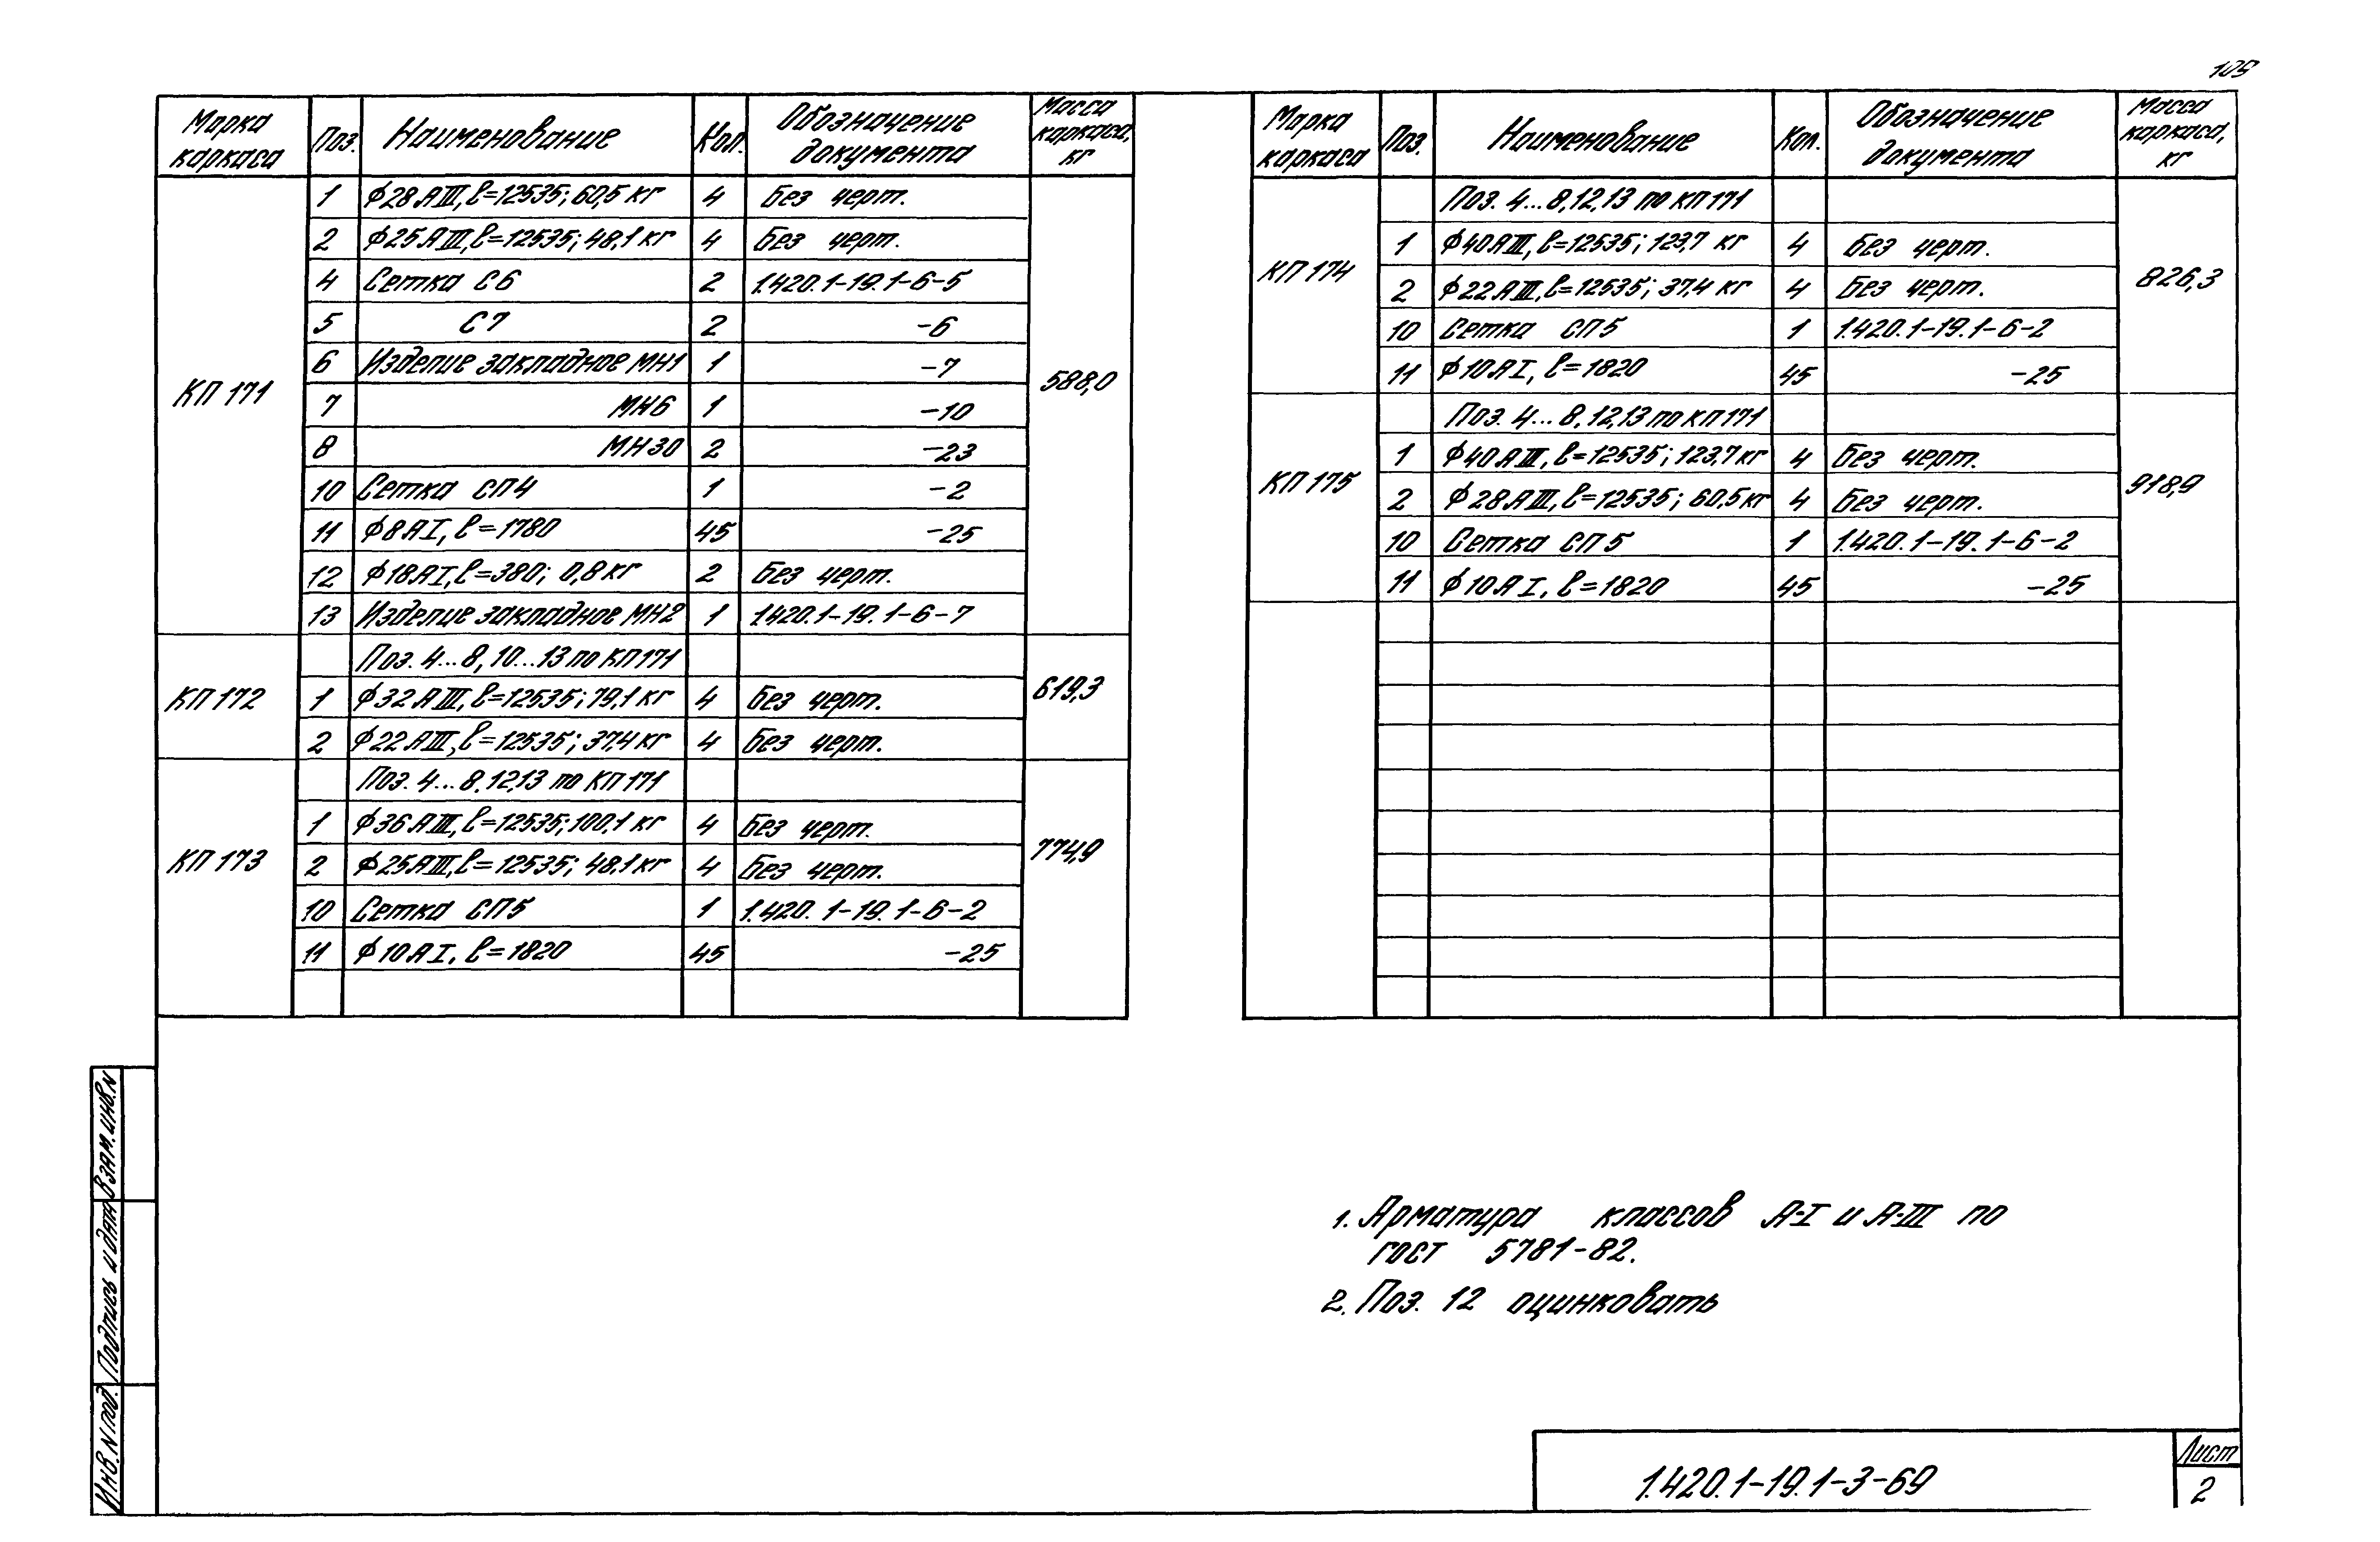 109
Марка каркаса | Поз. | Наименование | Кол. | Обозначение документа | Масса каркаса, кг
КП 171 | 1 | ф28АIII, ℓ=12535; 60,5 кг | 4 | Без черт. | 588,0
2 | ф25АIII, ℓ=12535; 48,1 кг | 4 | Без черт.
4 | Сетка С6 | 2 | 1.420.1-19.1-6-5
5 | С7 | 2 | -6
6 | Изделие закладное МН1 | 1 | -7
7 | МН6 | 1 | -10
8 | МН30 | 2 | -23
10 | Сетка СП4 | 1 | -2
11 | ф8АI, ℓ=1780 | 45 | -25
12 | ф18АI, ℓ=380; 0,8 кг | 2 | Без черт.
13 | Изделие закладное МН2 | 1 | 1.420.1-19.1-6-7
КП 172 | Поз. 4...8, 10...13 по КП171 | 619,3
1 | ф32АIII, ℓ=12535; 79,1 кг | 4 | Без черт.
2 | ф22АIII, ℓ=12535; 37,4 кг | 4 | Без черт.
КП 173 | Поз. 4...8, 12,13 по КП171 | 774,9
1 | ф36АIII, ℓ=12535; 100,1 кг | 4 | Без черт.
2 | ф25АIII, ℓ=12535; 48,1 кг | 4 | Без черт.
10 | Сетка СП5 | 1 | 1.420.1-19.1-6-2
11 | ф10АI, ℓ=1820 | 45 | -25
Марка каркаса | Поз. | Наименование | Кол. | Обозначение документа | Масса каркаса, кг
КП 174 | Поз. 4...8,12,13 по КП171 | 826,3
1 | ф40АIII, ℓ=12535; 123,7 кг | 4 | Без черт.
2 | ф22АIII, ℓ=12535; 37,4 кг | 4 | Без черт.
10 | Сетка СП5 | 1 | 1.420.1-19.1-6-2
11 | ф10АI, ℓ=1820 | 45 | -25
КП 175 | Поз. 4...8,12,13 по КП171 | 918,9
1 | ф40АIII, ℓ=12535; 123,7 кг | 4 | Без черт.
2 | ф28АIII, ℓ=12535; 60,5 кг | 4 | Без черт.
10 | Сетка СП5 | 1 | 1.420.1-19.1-6-2
11 | ф10АI, ℓ=1820 | 45 | -25
1. Арматура классов А-I и А-III по
ГОСТ 5781-82.
2. Поз. 12 оцинковать
Инв.N под. Подпись и дата Взам.инв.N
1.420.1-19.1-3-69
Лист
2